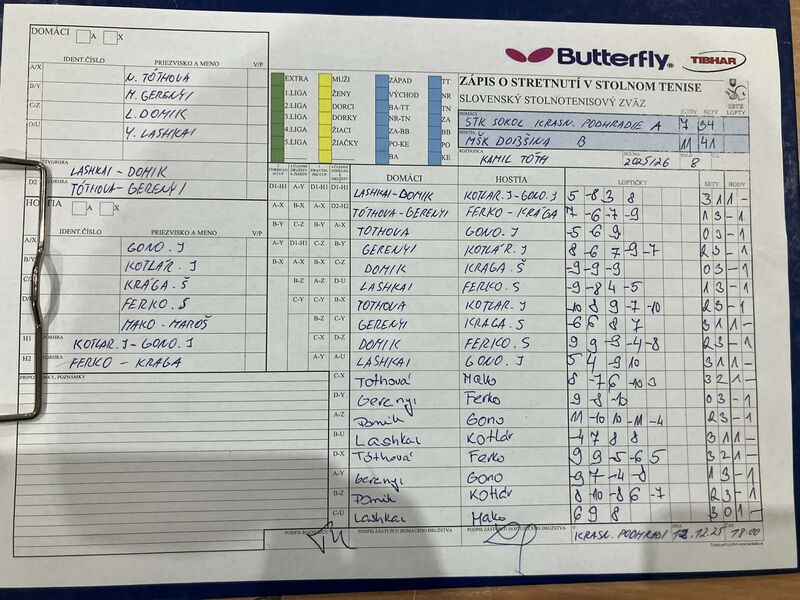 DOMÁCI A X
IDENT.ČÍSLO PRIEZVISKO A MENO V/P
A/X N. TÓTHOVA
B/Y M. GERENYI
C/Z L. DOMIK
D/U Y. LASHKAI
LASHKAI - DOMIK
D2 TÓTHOVA - GERENYI
HOSTIA A X
IDENT.ČÍSLO PRIEZVISKO A MENO V/P
A/X GONO. J
B/Y KOTLÁR. J
KRÁGA. Š
FERKO. S
MAKO - MAROŠ
H1 KOTLAR. J - GONO. J
H2 FERKO - KRAGA
POZNÁMKY
EXTRA MUŽI ZÁPAD TT
1.LIGA ŽENY VÝCHOD NR
2.LIGA DORCI BA-TT TN
3.LIGA DORKY NR-TN ZA
4.LIGA ŽIACI ZA-BB BB
5.LIGA ŽIAČKY PO-KE PO
BA KE
Butterfly TIBHAR
ZÁPIS O STRETNUTÍ V STOLNOM TENISE
SLOVENSKÝ STOLNOTENISOVÝ ZVÄZ
BODY SETY LOPTY
DOMÁCI STK SOKOL KRASN. PODHRADIE A 7 34
HOSTIA MŠK DOBŠINÁ B 11 41
ROZHODCA KAMIL TÓTH 2025/26 8
DOMÁCI HOSTIA LOPTIČKY SETY BODY
D1-H1 A-Y D1-H1 D1-H1 LASHKAI - DOMIK KOTLAR. J - GONO. J 5 -8 3 8 3 1 1 -
A-X B-X A-X D2-H2 TÓTHOVA - GERENYI FERKO - KRÁGA 7 -6 -7 -9 1 3 - 1
B-Y C-Z B-Y A-X TÓTHOVA GONO. J -5 -6 -9 0 3 - 1
A-Y D1-H1 C-Z B-Y GERENYI KOTLÁR. J 8 -6 7 -9 -7 2 3 - 1
B-X A-X B-X C-Z DOMIK KRAGA. Š -9 -9 -9 0 3 - 1
B-Z A-Z D-U LASHKAI FERKO. S -9 -8 4 -5 1 3 - 1
C-Y C-Y B-X TOTHOVA KOTLAR. J -10 8 9 -7 -10 2 3 - 1
B-Z C-Y GERENYI KRAGA. S -6 6 8 7 3 1 1 -
C-X D-Z DOMIK FERIKO. S 9 9 -9 -4 -8 2 3 - 1
A-Y A-U LASHKAI GONO. J 5 4 -9 10 3 1 1 -
C-X Tóthová Mako 8 -7 6 -10 3 3 2 1 -
D-Y Gerenyi Ferko -9 -8 -10 0 3 - 1
A-Z Domik Gono 11 -10 10 -11 -4 2 3 - 1
B-U Lashkai Kotlár -4 7 8 8 3 1 1 -
D-X Tóthová Ferko 9 9 -5 -6 5 3 2 1 -
A-Y Gerenyi Gono -9 7 -4 -8 1 3 - 1
B-Z Domik Kotlár 8 -10 -8 6 -7 2 3 - 1
C-U Lashkai Mako 6 9 8 3 0 1 -
PODPIS ZÁSTUPCU DOMÁCEHO DRUŽSTVA PODPIS ZÁSTUPCU HOSŤUJÚCEHO DRUŽSTVA
KRASN. PODHRADI 12.12.25 18:00